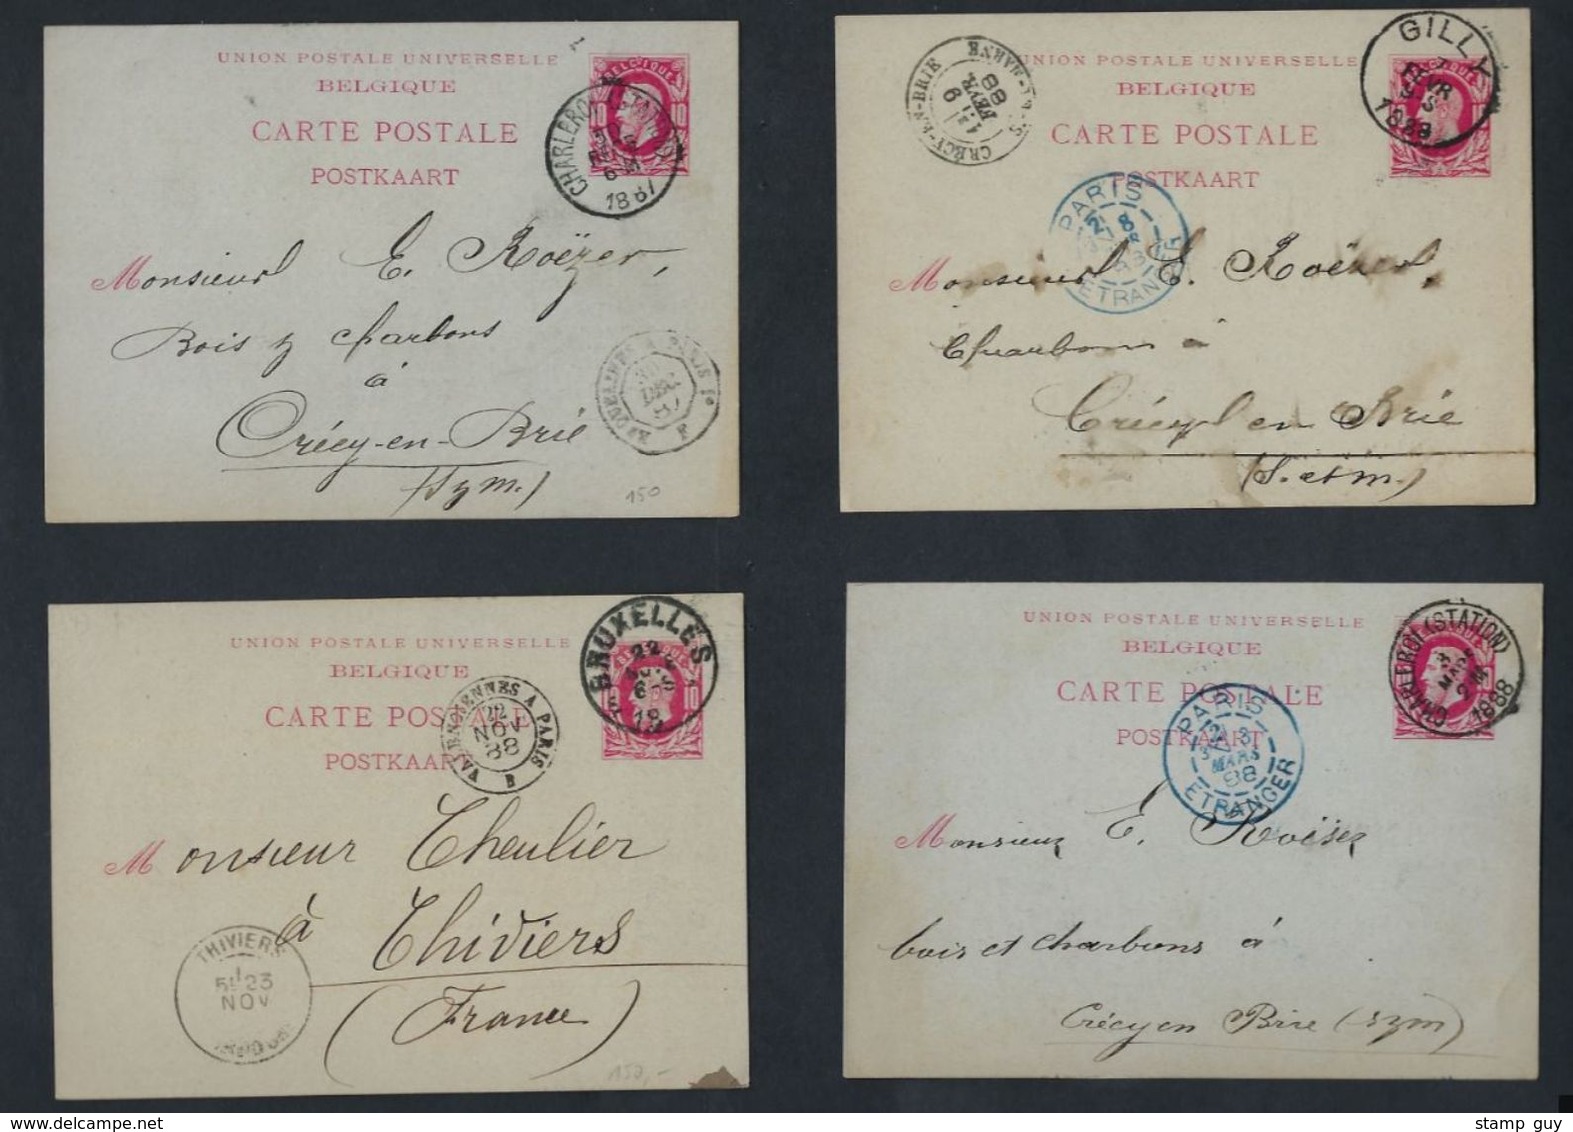 UNION POSTALE UNIVERSELLE
BELGIQUE
CARTE POSTALE
POSTKAART
BELGIQUE
10 10
CHARLEROI (STATION)
6 M
1887
Monsieur E. Roëzer,
Bois & charbons
à
Crécy-en-Brie
(S & m.)
A PARIS 1º
30
DEC
87
F
150
UNION POSTALE UNIVERSELLE
BELGIQUE
CARTE POSTALE
POSTKAART
GILLY
7
FEVR
1888
CRECY-EN-BRIE S.-ET-MARNE
9
FEVR
88
PARIS
8
ETRANGER
Monsieur E. Roëzer,
Charbons à
Crécy en Brie
(S. et m.)
UNION POSTALE UNIVERSELLE
BELGIQUE
CARTE POSTALE
POSTKAART
BRUXELLES
22
6
VALENCIENNES A PARIS
22
NOV
88
B
Monsieur Theulier
à Thiviers
(France)
THIVIERS
5E 23
NOV
150,-
UNION POSTALE UNIVERSELLE
BELGIQUE
CARTE POSTALE
POSTKAART
CHARLEROI (STATION)
3
MARS
2
1888
PARIS
3
MARS
88
ETRANGER
Monsieur E. Roëzer
bois et charbons à
Crécy en Brie (S & m)
stamp guy